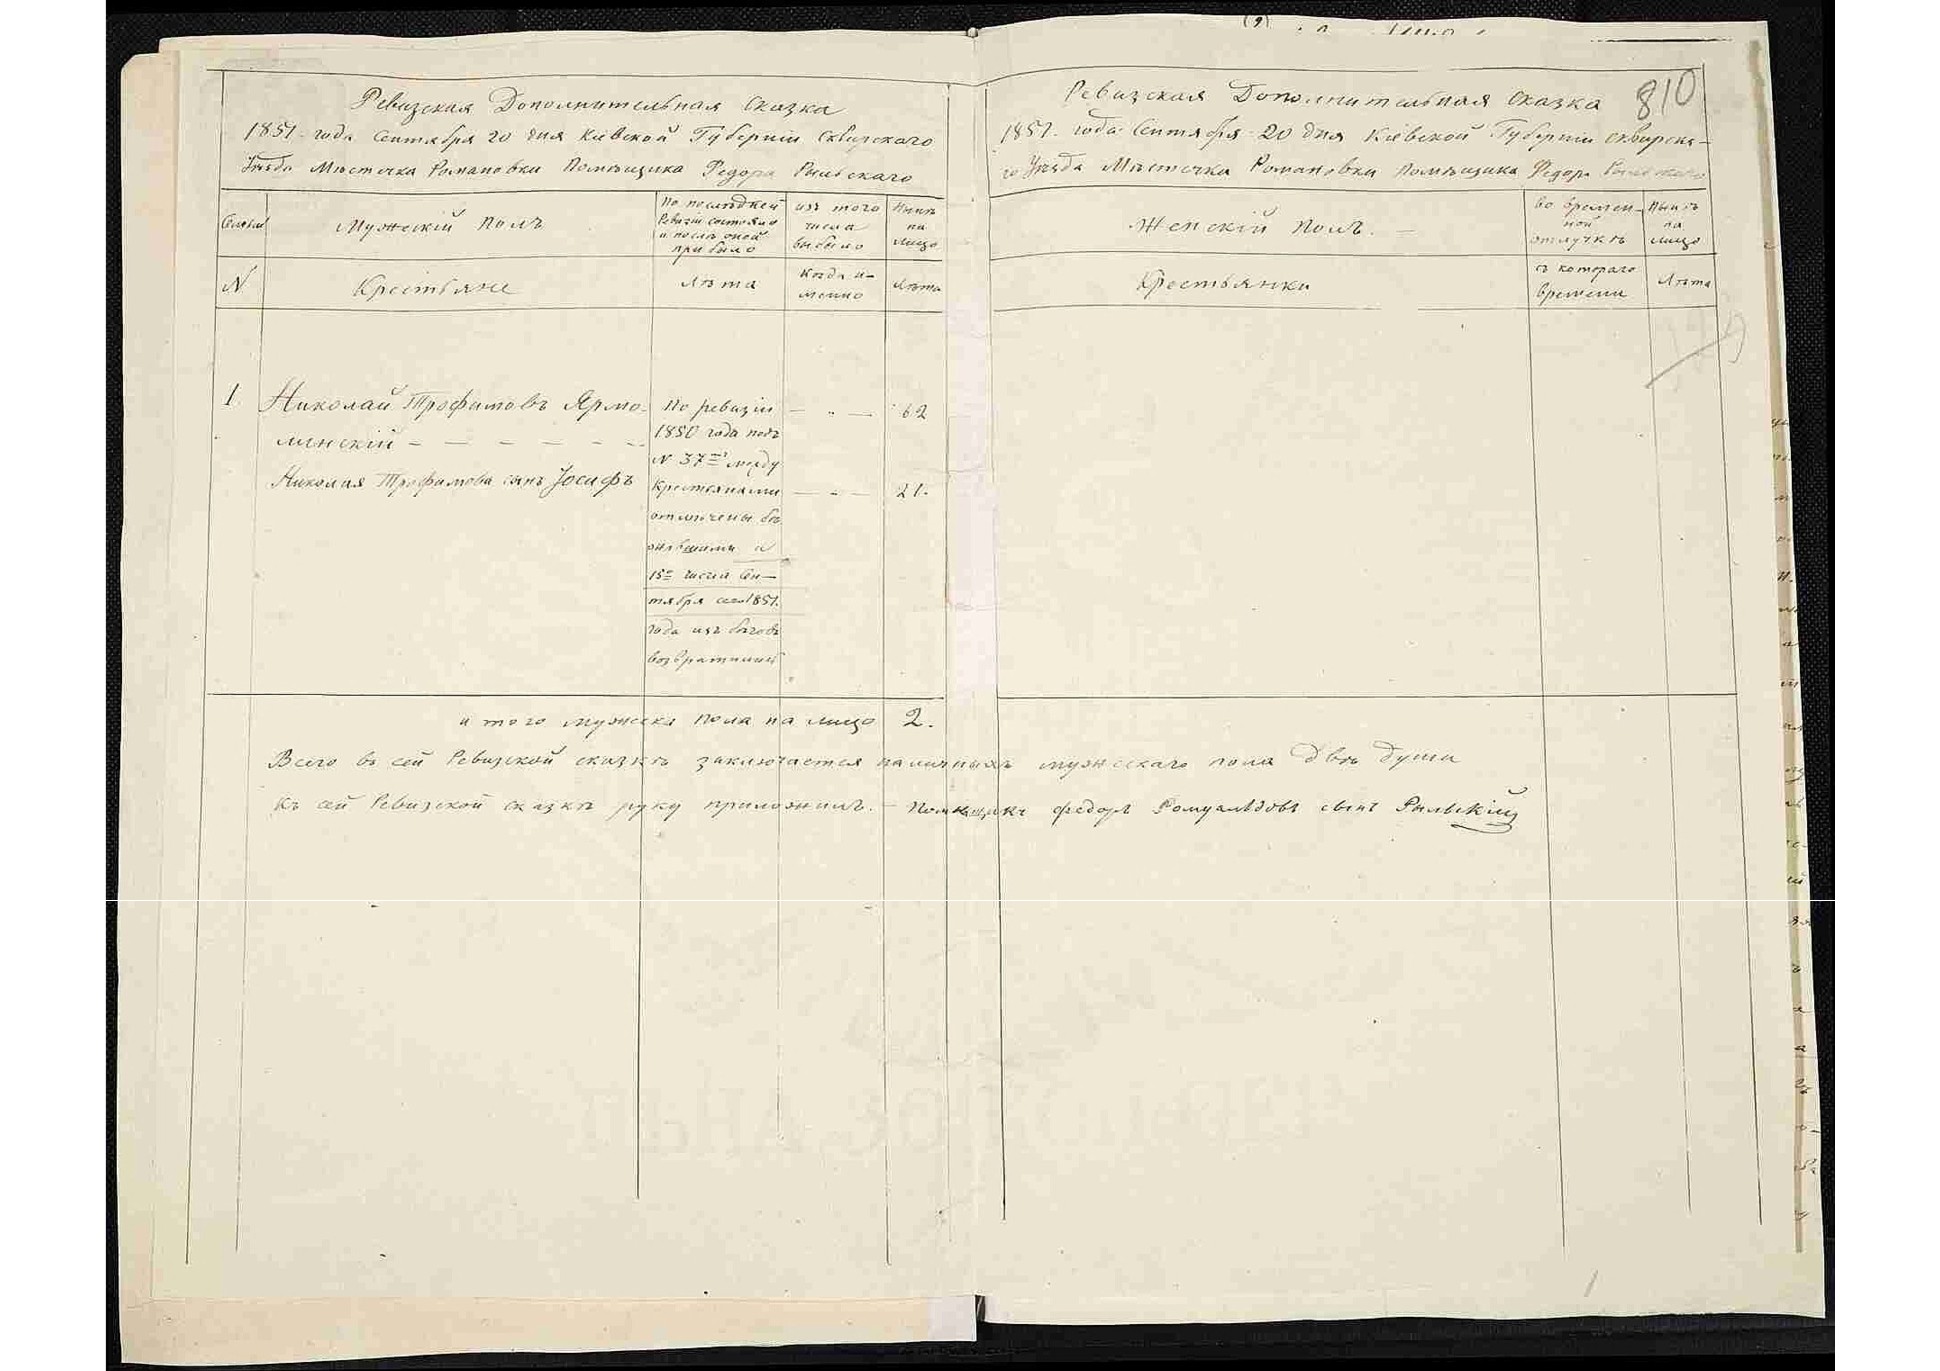 Ревизская Дополнительная сказка
1851. года Сентября 20 дня Кіевской Губерніи Сквирскаго
Уѣзда Мѣстечка Романовки Помѣщика Федора Рыльскаго
Семьи
Мужескій полъ
По послѣдней
Ревизіи состояло
и послѣ оной
прибыло
изъ того
числа
выбыло
Нынѣ
на
лицо
N
Крестьяне
Лѣта
Когда и-
менно
Лѣта
1.
Николай Трофимовъ Ярмо-
линскій - - - - - -
Николая Трофимова сынъ Іосифъ
По ревизіи
1850 года подъ
N 37 между
Крестьянами
отмѣчены бѣ
жавшими и
15 числа Сен-
тября сего 1851.
года изъ бѣговъ
возвратились
62
21.
и того мужеска пола на лицо 2.
810
Ревизская Дополнительная сказка
1851. года Сентября 20 дня Кіевской Губерніи Сквирска-
го Уѣзда Мѣстечка Романовки Помѣщика Федора Рыльскаго
Женскій полъ. -
во времен-
ной
отлучкѣ
Нынѣ
на
лицо
Крестьянки
съ котораго
времени
Лѣта
Всего въ сей Ревизской сказкѣ заключается наличныхъ мужескаго пола двѣ души
Къ сей Ревизской сказкѣ руку приложилъ. - Помѣщикъ Федоръ Ромуальдовъ сынъ Рыльскій